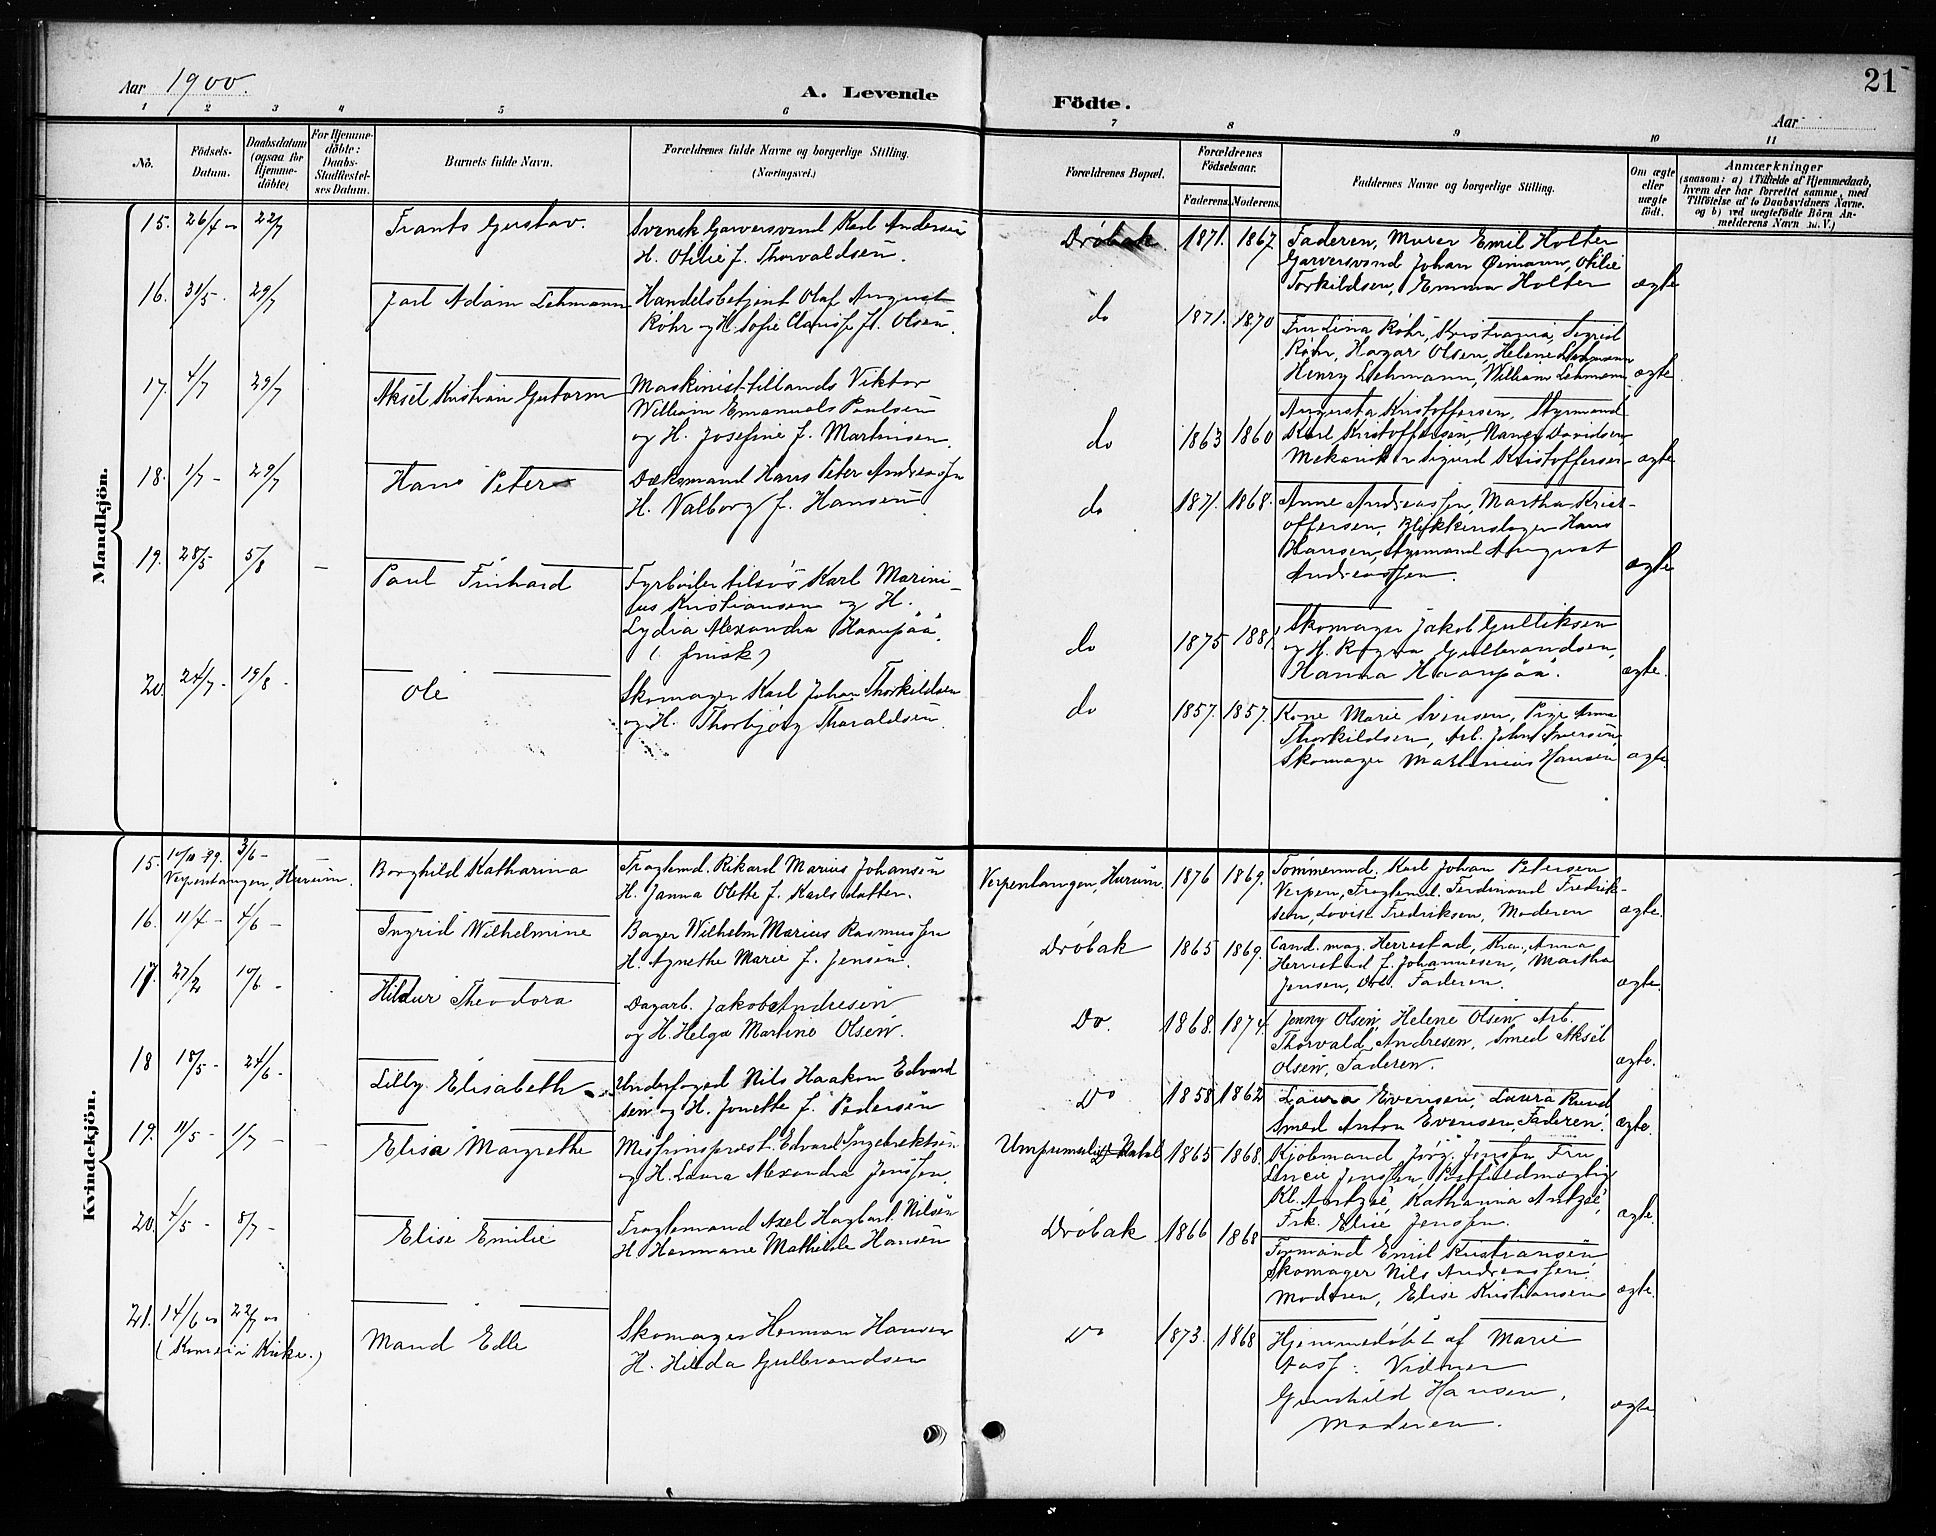 Aar 1900.
A. Levende
Födte.
21
Aar
1 2 3 4 5 6 7 8 9 10 11
No.
Födsels-
Datum.
Daabsdatum
(ogsaa for
Hjemme-
döbte)
For Hjemme-
döbte:
Daabs-
Stadfæstel-
ses Datum.
Barnets fulde Navn.
Forældrenes fulde Navne og borgerlige Stilling.
(Næringsvei.)
Forældrenes Bopæl.
Forældrenes
Födselsaar.
Faderens. Moderens.
Faddernes Navne og borgerlige Stilling.
Om ægte
eller
uægte
födt.
Anmærkninger
(saasom: a) i Tilfælde af Hjemmedaab,
hvem der har forrettet samme, med
Tilföielse af to Daabsvidners Navne.
og b) ved uægtefödte Börn An-
melderens Navn m.V.)
Mandkjön.
15. 26/4 22/7 Frants Gustav.
Svensk Garversvend Karl Andersen
H. Otilie f. Thorvaldsen.
Dröbak 1871. 1867.
Faderen, Murer Emil Holter
Garversvend Johan Öimann, Otilie
Torkildsen, Emma Holter ægte
16. 31/5. 29/7 Jarl Adam Lehmann
Handelsbetjent Olaf August
Röhr og H. Sofie f. Olsen.
do 1871. 1870
Fru Lina Röhr, Kristiania, Sigrid
Röhr, Hagar Olsen, Helene Lehmann
Henry Lehmann, William Lehmann ægte
17. 4/7 29/7 Aksel Kristian Gutorm
Maskinist tillands Viktor
William Emanuels Paulsen
og H. Josefine f. Martinsen.
do 1863 1860
Augusta Kristoffersen, Styrmand
Karl Kristoffersen, Nancy Davidsen,
Mekaniker Sigurd Kristoffersen ægte
18. 1/7 - 29/7 Hans Peter
Dæksmand Hans Peter Andreassen
H. Valborg f. Hansen
do 1871. 1868.
Anne Andreassen, Martha Krist-
offersen, Blikkenslager Hans
Hansen, Styrmand August
Andreassen. ægte
19. 28/5 5/8 - Paul Finhard
Fyrböder tilsös Karl Marini-
us Kristiansen og H.
Lydia Alexandra Haanpää.
(finsk)
do 1875 1881
Skomager Jakob Gulliksen
og H. Ragna Gulbrandsen,
Hanna Haanpää. ægte.
20. 24/7 - 19/8 - Ole
Skomager Karl Johan Thorkildsen
og H. Thorbjörg Tharaldsen
do 1857. 1857.
Kone Marie Svensen, Pige Anna
Thorkildsen, Arb. Johan Iversen,
Skomager Martinius Hansen ægte.
Kvindekjön.
15. 10/10 99. 3/6 - Borghild Katharina
Verpentangen, Hurum.
Fragtemd. Rikard Marius Johansen
H. Janna Olette f. Karlsdatter.
Verpentangen Hurum 1876 1869.
Tömmermd. Karl Johan Petersen
Verpen, Fragtemd. Ferdinand Fredrik-
sen, Lovise Fredriksen, Moderen ægte.
16. 11/4 - 4/6 - Ingrid Wilhelmine
Bager Wilhelm Marius Rasmussen
H. Agnethe Marie f. Jensen.
Dröbak 1865 1869.
Cand. mag. Herrestad, Kra., Anna
Herrestad f. Johannesen, Martha
Jensen, Faderen. ægte.
17. 27/2 10/6 - Hildur Theodora
Dagarb. Jakob Andresen
og H. Helga Martine Olsen.
Do. 1868. 1874.
Jenny Olsen, Helene Olsen, Arb.
Thorvald Andresen, Smed Aksel
Olsen, Faderen. ægte.
18 18/5 - 24/6 - Lilly Elisabeth
Underfoged Nils Haakon Edvard
sen og H. Jonette f. Pedersen
Do 1858 1862
Laura Evensen, Laura Rund,
Smed Anton Evensen, Faderen. ægte.
19. 11/5 - 1/7 - - Elisa Margrethe
Missionsprest Edvard Ingebrektsen
og H. Laura Alexandra Jenssen.
Natal 1865 1868.
Kjöbmand Jörg. Jenssen, Fru
Lucie Jenssen, Postfuldmægtig
Kl. Antzeé, Katharina Antzeé,
Frk. Elise Jenssen. ægte.
20 4/5 - 8/7 - Elise Emilie
Fragtemand Axel Hagbart Nilsen
H. Hermane Mathilde Hansen
Dröbak 1866 1868
Formand Emil Kristiansen
Skomager Nils Andreassen,
Moderen, Elise Kristiansen ægte.
21. 14/6 00 22/7 00 Maud Edle
(Kom ei i Kirke.)
Skomager Herman Hansen
H. Hilda Gulbrandsen
Do 1873. 1868
Hjemmedöbt af Marie
Aas: Vidner
Gunhild Hansen,
Moderen. ægte.